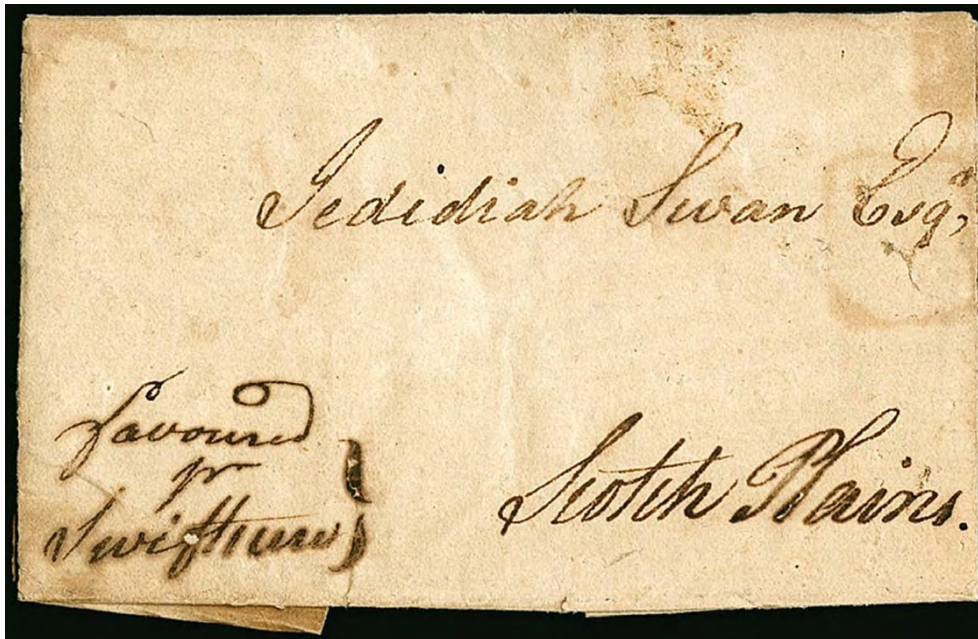 Jedidiah Swan Esqr,
favoured
pr
Swiftsure
Scotch Plains.